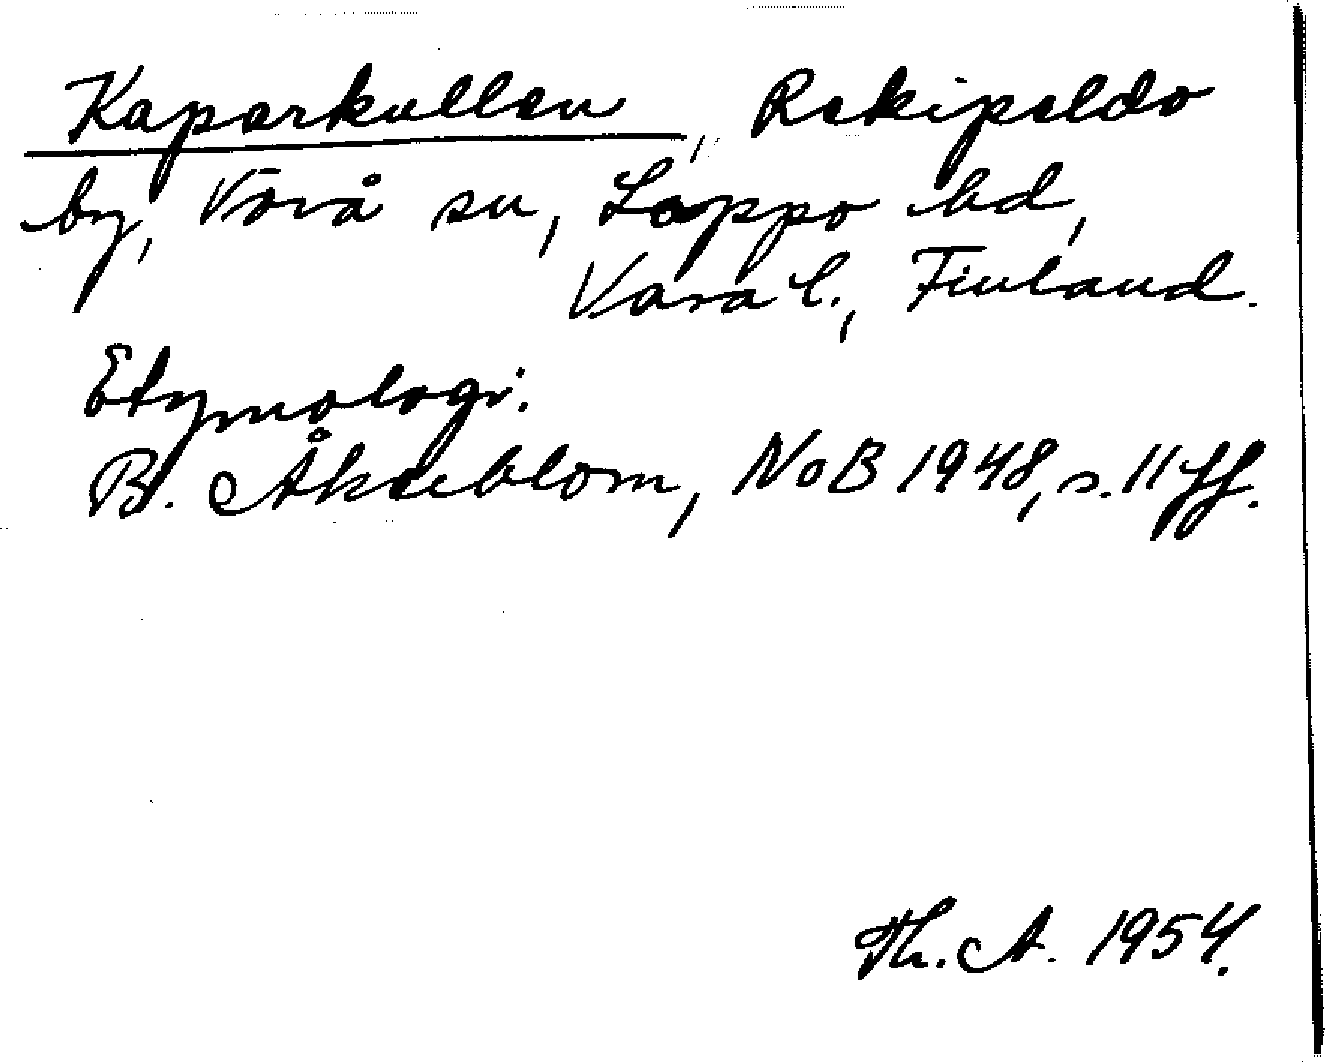 Kaparkullen, Rekipeldo
by, Vörå sn, Lappo hd,
Vasa l., Finland.
Etymologi:
B. Åkerblom, NoB 1948, s. 11 ff.
Th. A. 1954.